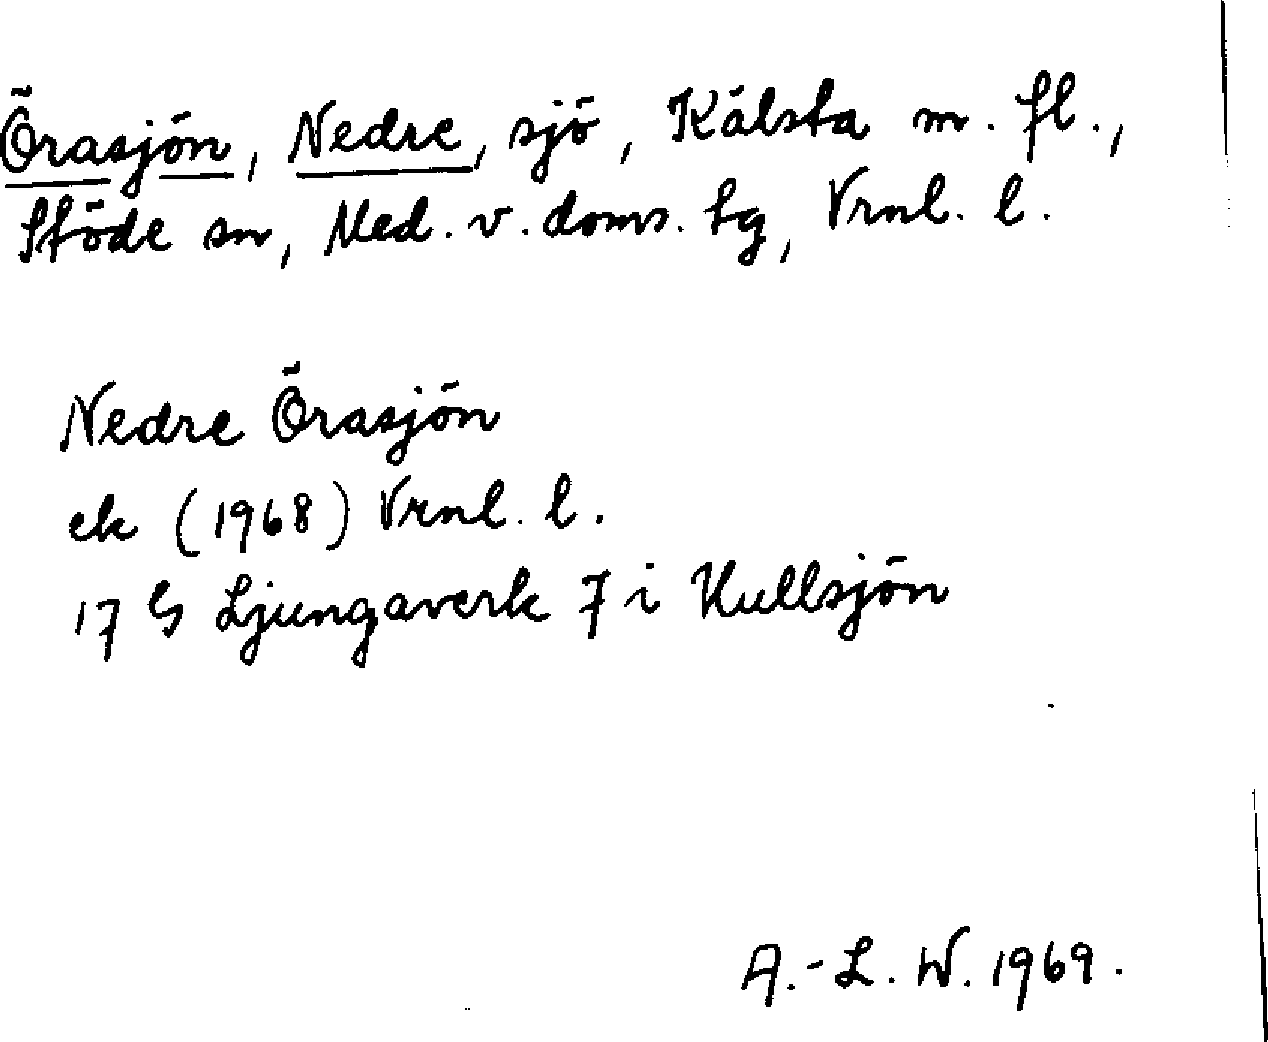 Örasjön, Nedre, sjö, Kälsta m. fl.,
Stöde sn, Med. v. doms. tg, Vrnl. l.
Nedre Örasjön
ek (1968) Vrnl. l.
17 G Ljungaverk 7 i Kullsjön
A.-L. W. 1969.